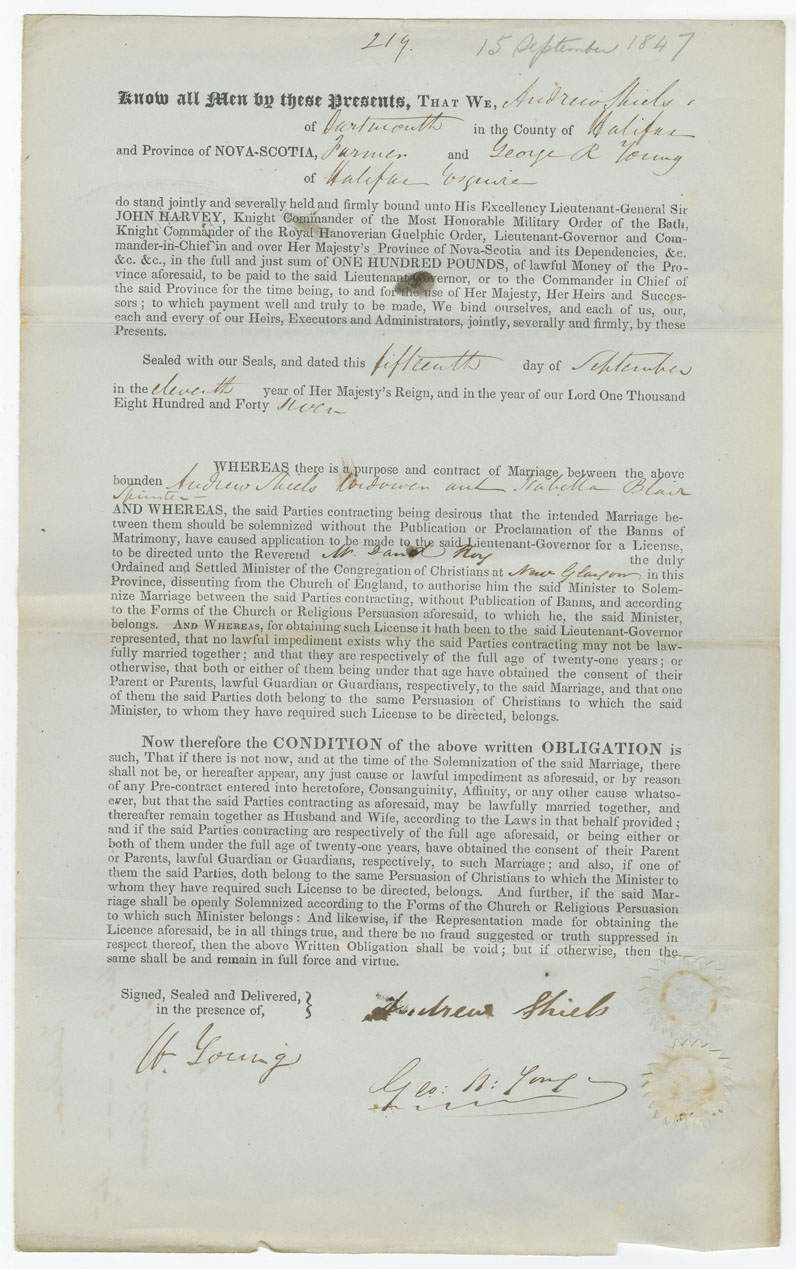 219.
15 September 1847
Know all Men by these Presents, THAT WE, Andrew Shiels
of Dartmouth in the County of Halifax
and Province of NOVA-SCOTIA, Farmer and George R Young
of Halifax Esquire
do stand jointly and severally held and firmly bound unto His Excellency Lieutenant-General Sir
JOHN HARVEY, Knight Commander of the Most Honorable Military Order of the Bath,
Knight Commander of the Royal Hanoverian Guelphic Order, Lieutenant-Governor and Com-
mander-in-Chief in and over Her Majesty's Province of Nova-Scotia and its Dependencies, &c.
&c. &c., in the full and just sum of ONE HUNDRED POUNDS, of lawful Money of the Pro-
vince aforesaid, to be paid to the said Lieutenant-Governor, or to the Commander in Chief of
the said Province for the time being, to and for the use of Her Majesty, Her Heirs and Succes-
sors ; to which payment well and truly to be made, We bind ourselves, and each of us, our,
each and every of our Heirs, Executors and Administrators, jointly, severally and firmly, by these
Presents.
Sealed with our Seals, and dated this fifteenth day of September
in the eleventh year of Her Majesty's Reign, and in the year of our Lord One Thousand
Eight Hundred and Forty seven
WHEREAS there is a purpose and contract of Marriage between the above
bounden Andrew Shiels Widower and Isabella Blair
Spinster
AND WHEREAS, the said Parties contracting being desirous that the intended Marriage be-
tween them should be solemnized without the Publication or Proclamation of the Banns of
Matrimony, have caused application to be made to the said Lieutenant-Governor for a License,
to be directed unto the Reverend Mr David Roy the duly
Ordained and Settled Minister of the Congregation of Christians at New Glasgow in this
Province, dissenting from the Church of England, to authorise him the said Minister to Solem-
nize Marriage between the said Parties contracting, without Publication of Banns, and according
to the Forms of the Church or Religious Persuasion aforesaid, to which he, the said Minister,
belongs. AND WHEREAS, for obtaining such License it hath been to the said Lieutenant-Governor
represented, that no lawful impediment exists why the said Parties contracting may not be law-
fully married together ; and that they are respectively of the full age of twenty-one years ; or
otherwise, that both or either of them being under that age have obtained the consent of their
Parent or Parents, lawful Guardian or Guardians, respectively, to the said Marriage, and that one
of them the said Parties doth belong to the same Persuasion of Christians to which the said
Minister, to whom they have required such License to be directed, belongs.
Now therefore the CONDITION of the above written OBLIGATION is
such, That if there is not now, and at the time of the Solemnization of the said Marriage, there
shall not be, or hereafter appear, any just cause or lawful impediment as aforesaid, or by reason
of any Pre-contract entered into heretofore, Consanguinity, Affinity, or any other cause whatso-
ever, but that the said Parties contracting as aforesaid, may be lawfully married together, and
thereafter remain together as Husband and Wife, according to the Laws in that behalf provided ;
and if the said Parties contracting are respectively of the full age aforesaid, or being either or
both of them under the full age of twenty-one years, have obtained the consent of their Parent
or Parents, lawful Guardian or Guardians, respectively, to such Marriage ; and also, if one of
them the said Parties, doth belong to the same Persuasion of Christians to which the Minister to
whom they have required such License to be directed, belongs. And further, if the said Mar-
riage shall be openly Solemnized according to the Forms of the Church or Religious Persuasion
to which such Minister belongs : And likewise, if the Representation made for obtaining the
Licence aforesaid, be in all things true, and there be no fraud suggested or truth suppressed in
respect thereof, then the above Written Obligation shall be void ; but if otherwise, then the
same shall be and remain in full force and virtue.
Signed, Sealed and Delivered,
in the presence of,
Andrew Shiels
W. Young
Geo: R: Young